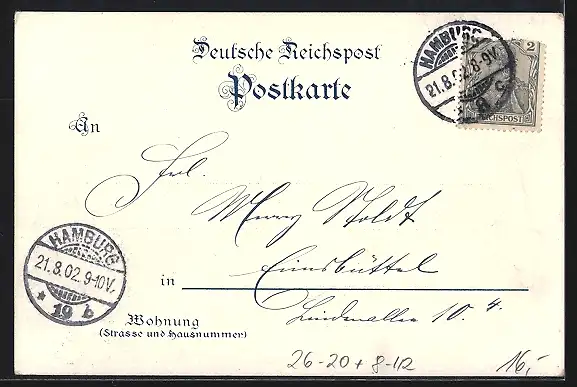 Deutsche Reichspost
Postkarte
HAMBURG
21.8.02.8-9V.
2
REICHSPOST
An
Frl.
Merry Stoldt
HAMBURG
21.8.02.9-10V.
* 19 b
in Eimsbüttel
Wohnung
Lindenallee 10.4.
(Strasse und Hausnummer)
26-20+8-12
16,-